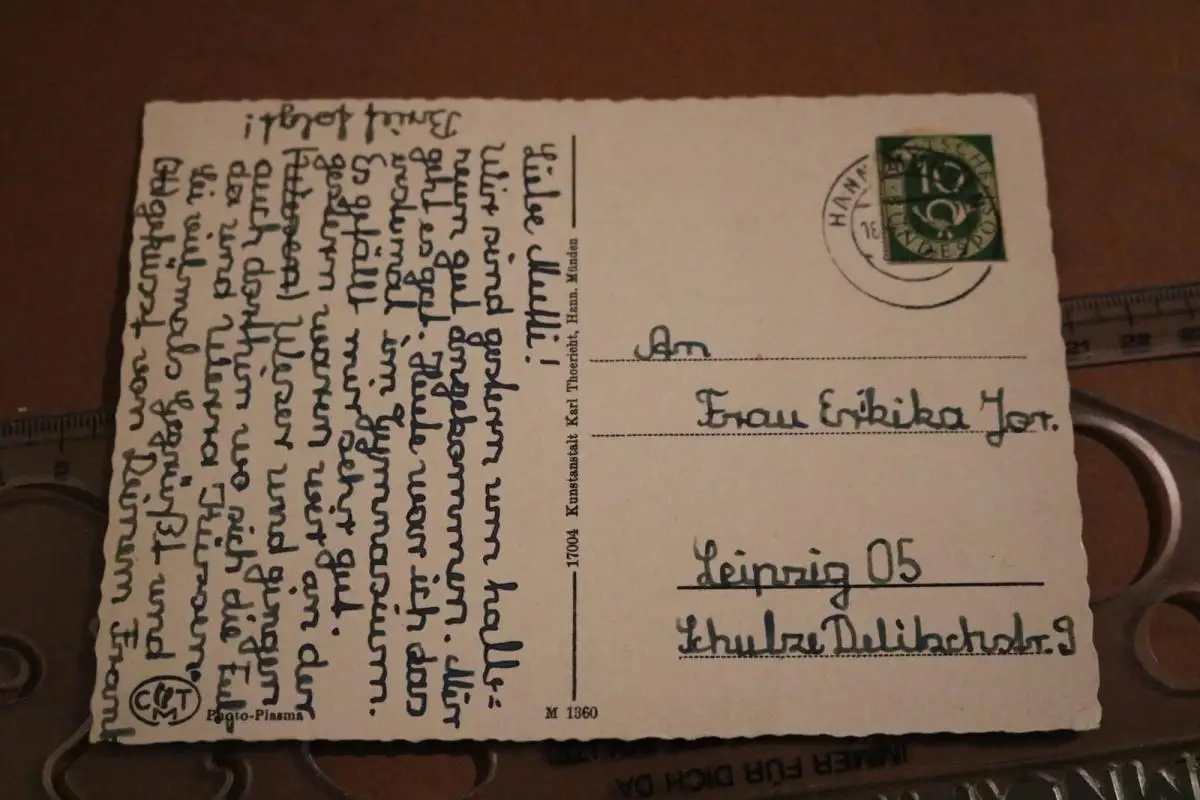 Liebe Mutti!
Wir sind gestern um halb=
neun gut angekommen. Mir
geht es gut. Heute war ich das
erstemal im Gymnasium.
Es gefällt mir sehr gut.
Gestern waren wir an der
Weser und gingen
auch dorthin wo sich die Ful-
da und Werra küssen.
Sei vielmals gegrüßt und
geküsst von Deinem Frank
Brief folgt!
17004 Kunstanstalt Karl Thoericht, Hann. Münden
C M T
Photo-Plasma
M 1360
HANN
10
DEUTSCHE BUNDESPOST
An
Frau Erikika Jor.
Leipzig O5
Schulze Delitzchstr. 9
21 22
IMMER FÜR DICH DA